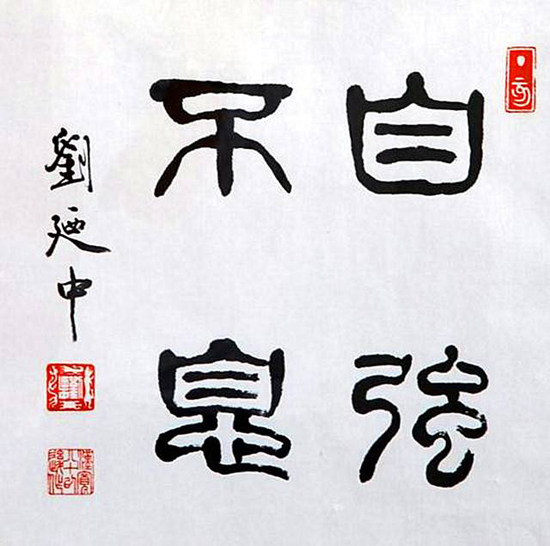 自強
不息
劉廼中